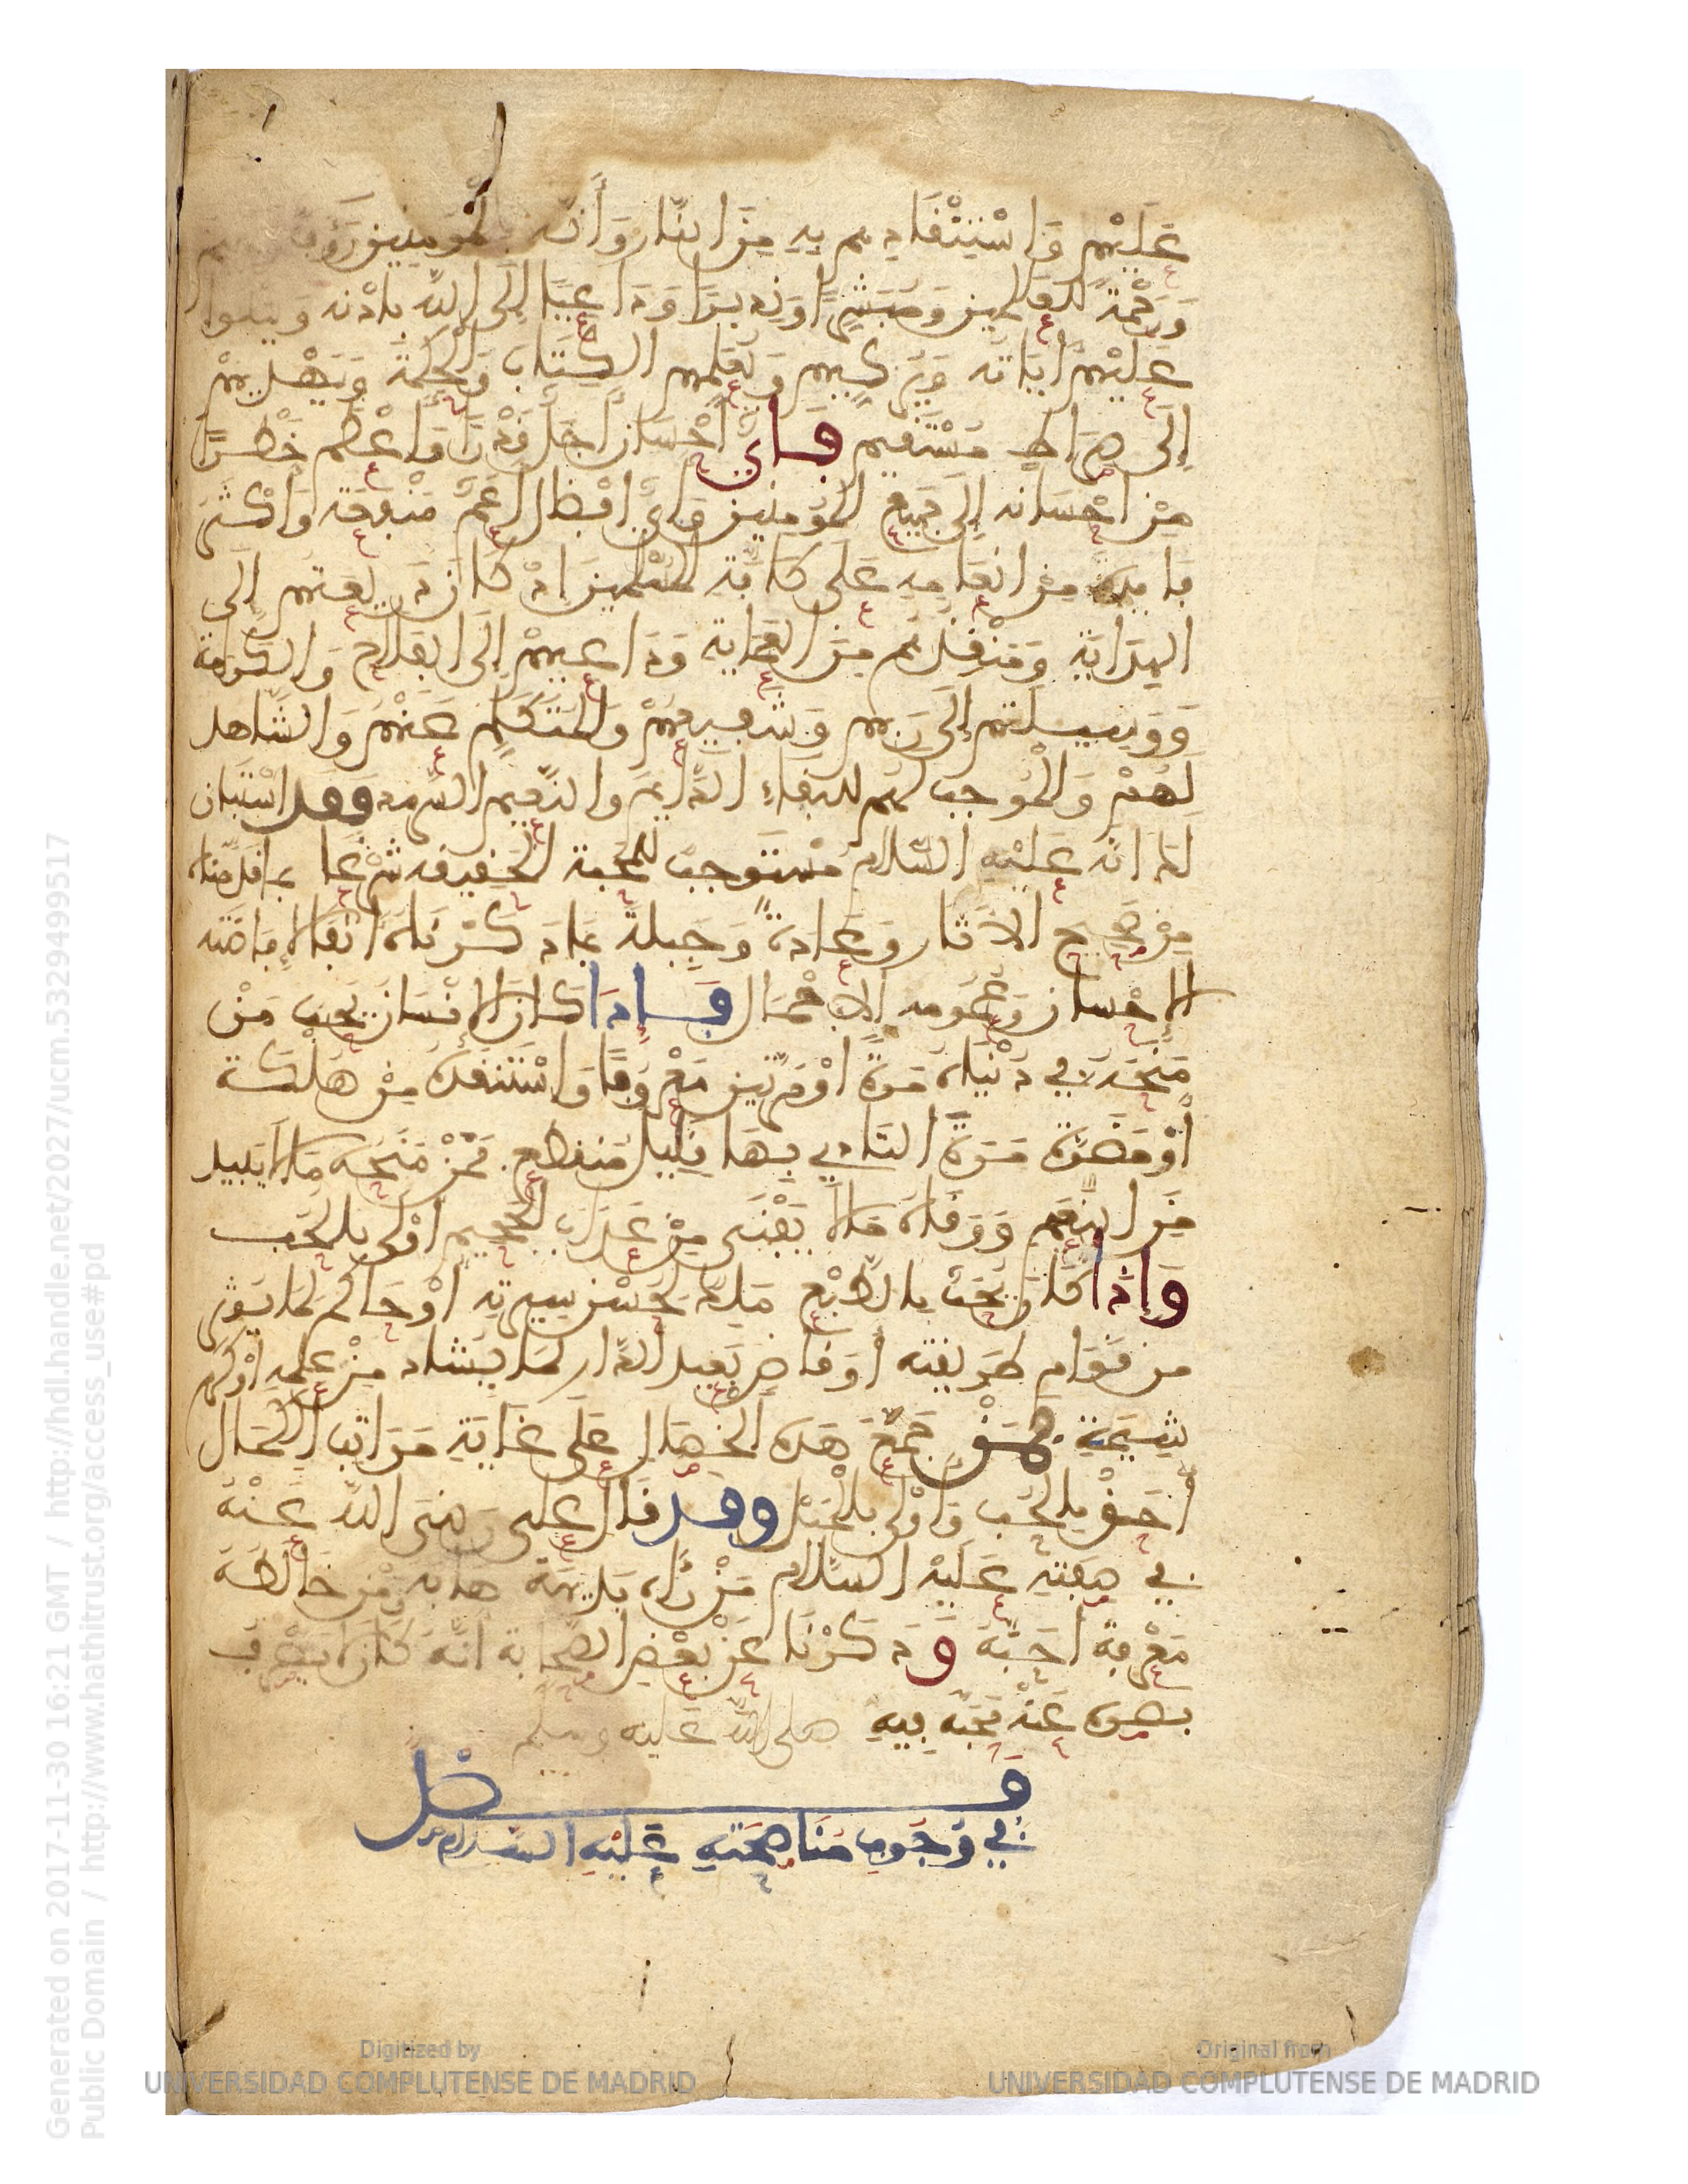 عَلَيْهِم وَاسْتِنْقَاذِهم بِهِ مِنَ النّار وَأَنّه بالمومنين رَءوف رحيم
وَرَحْمَة للعَلمين وَمُبَشِّرًا وَنذيرًا وَدَاعِيًا إِلَى اللّه بإذْنه وَيتلوا
عَليْهم ءايَاته وَيُزَكيهم وَيُعَلمهم الكِتَابَ وَالحِكْمَةَ وَيَهْديهمْ
إِلَى صِرَاطٍ مُسْتَقيم فَأيّ احْسَان اجَلّ قَدْرًا وَاعْظم خَطَرًا
مِنْ احْسَانه إِلَى جَميع المُومنين وَأيّ افضال اعَمّ مَنْفعَة وَاكْثَر
فايدة مِنْ انعَامِهِ عَلَى كافّة المُسْلمينَ اذْ كانَ ذريعتهم إلَى
الهِدَايَة وَمُنْقِذَهم مِنَ العَمَاية وَدَاعيهِمْ إِلَى الفَلاح وَالكَرامة
وَوَسيلتهم إِلَى رَبهم وَشَفيعهُمْ وَالمُتَكَلم عَنْهم وَالشّاهد
لَهُمْ وَالمُوجب لهم للبقاءِ الدّايم وَالنّعيم السّرمد وقد اسْتَبان
لك انه عَليْهِ السّلام مُسْتَوجب للمحبة الحقيقة شرْعًا بما قدّمناه
مِنْ صَحيح الاثار وَعَادة وَجِبلة بما ذكرْنَاهُ انفا لإفاضته
الإحْسان وَعُمومه الاجْمَال فَإذا كانَ الإنْسَان يحب مَنْ
مَنَحَه في دُنْيَاهُ مَرة اوْ مَرتين مَعْرُوفًا وَاسْتَنقذهُ مِنْ هَلكة
أَوْ مَضَرة مُدة التاذي بهَا قليل مُنقطع فمَنْ مَنَحَهُ مَا لا يَبيد
مِنَ النّعيم وَوَقاهُ مَا لا يَفْنَى مِنْ عَذَاب الجَحيم اوْلى بالحُب
وَإذَا كَانَ يُحَبّ بالطبْع مَلِك لحُسْن سِيرته اوْ حَاكم لما يُوثر
من قوَام طَريقته أَوْ قاصٍ بَعيد الدّار لمَا يشاد مِنْ عِلمِه اوْ كرم
شِيمَتِهِ فمَنْ جَمعَ هذه الخِصَال عَلَى غايَة مَرَاتب الكَمَال
أحَقّ بالحُب وَأوْلى بالمَيْل وقد قالَ علي رَضيَ اللّه عَنْهُ
في صِفته عَليْه السَّلام مَنْ رءاه بَديهَة هابه وَمَنْ خَالطَهُ
مَعْرفة احَبّهُ وَذكَرْنا عَنْ بَعْض الصّحابة انّهُ كانَ لا يَصْرفُ
بَصره عَنْهُ مَحَبّة فيهِ صلى اللّه عَليه وسلم
فصل
في وُجُوبِ مُنَاصَحَتِهِ عَلَيْهِ السَّلام
Generated on 2017-11-30 16:21 GMT / http://hdl.handle.net/2027/ucm.5329499517
Public Domain / http://www.hathitrust.org/access_use#pd
Digitized by
UNIVERSIDAD COMPLUTENSE DE MADRID
Original from
UNIVERSIDAD COMPLUTENSE DE MADRID